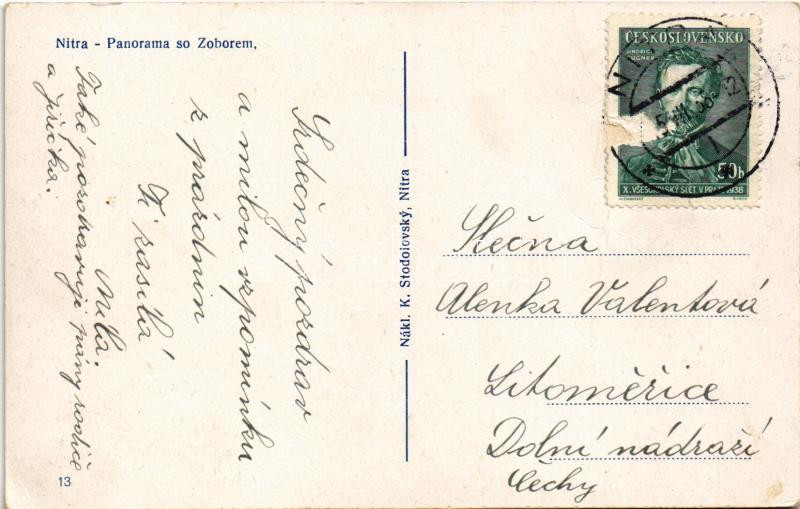 Nitra - Panorama so Zoborem.
Srdečný pozdrav
a milou vzpomínku
z prázdnin
Ti zasílá
Míla.
Také pozdravuje pány rodiče
a Jiříčka.
13
Nákl. K. Stodolovský, Nitra
ČESKOSLOVENSKO
JINDŘICH
FÜGNER
50h
X. VŠESOKOLSKÝ SLET V PRAZE 1938
NITRA
Slečna
Alenka Valentová
Litoměřice
Dolní nádraží
Čechy